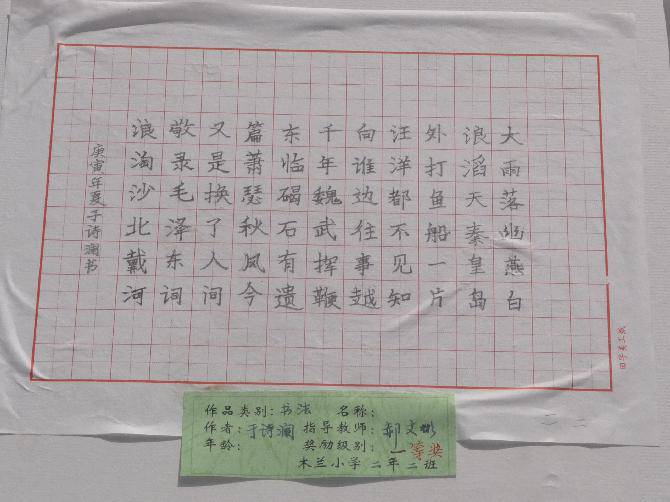 大雨落幽燕白
浪滔天秦皇岛
外打鱼船一片
汪洋都不见知
向谁边往事越
千年魏武挥鞭
东临碣石有遗
篇萧瑟秋风今
又是换了人间
敬录毛泽东词
浪淘沙北戴河
庚寅年夏于诗澜书
田字美工纸
作品类别：书法 名称：
作者：于诗澜 指导教师：郝文彬
年龄： 奖励级别：一等奖
木兰小学二年二班